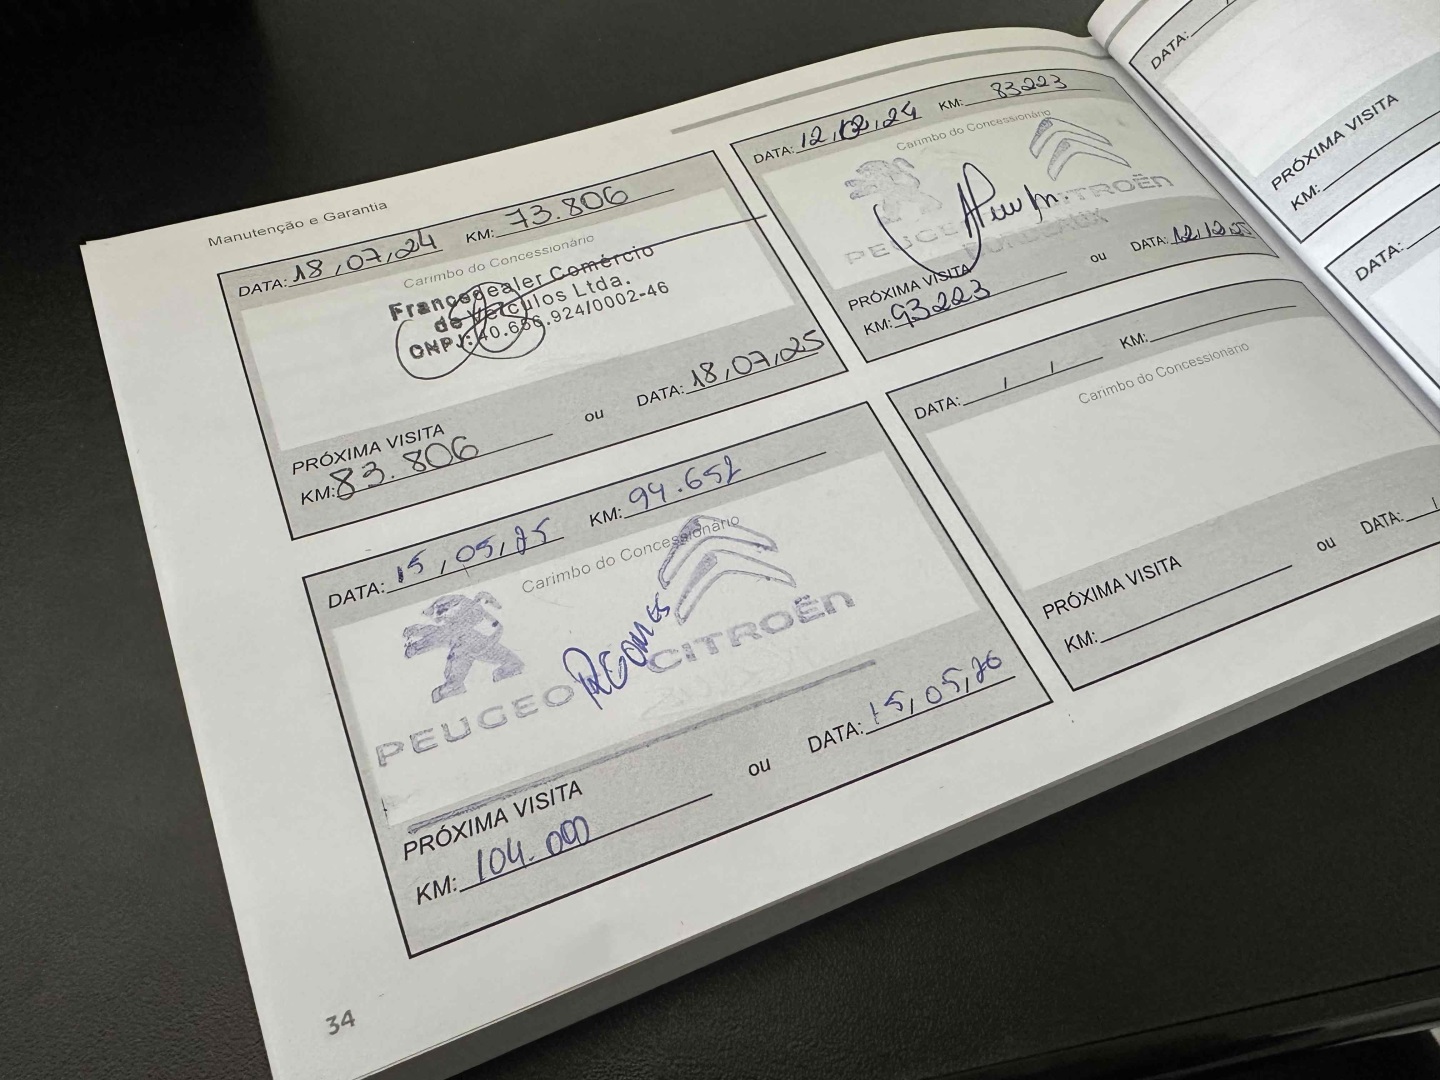 Manutenção e Garantia
DATA: 18,07,24 KM: 73.806
Carimbo do Concessionário
Francedealer Comércio
de Veículos Ltda.
CNPJ: 40.656.924/0002-46
PRÓXIMA VISITA
KM: 83.806 ou DATA: 18,07,25
DATA: 12,12,24 KM: 83223
Carimbo do Concessionário
PEUGEOT CITROËN
PRÓXIMA VISITA
KM: 93223 ou DATA: 12,12,25
DATA: 15,05,25 KM: 94.652
Carimbo do Concessionário
PEUGEOT CITROËN
PRÓXIMA VISITA
KM: 104.000 ou DATA: 15,05,26
DATA: / / KM:
Carimbo do Concessionário
PRÓXIMA VISITA
KM: ou DATA: /
34
DATA: /
PRÓXIMA VISITA
KM:
DATA: